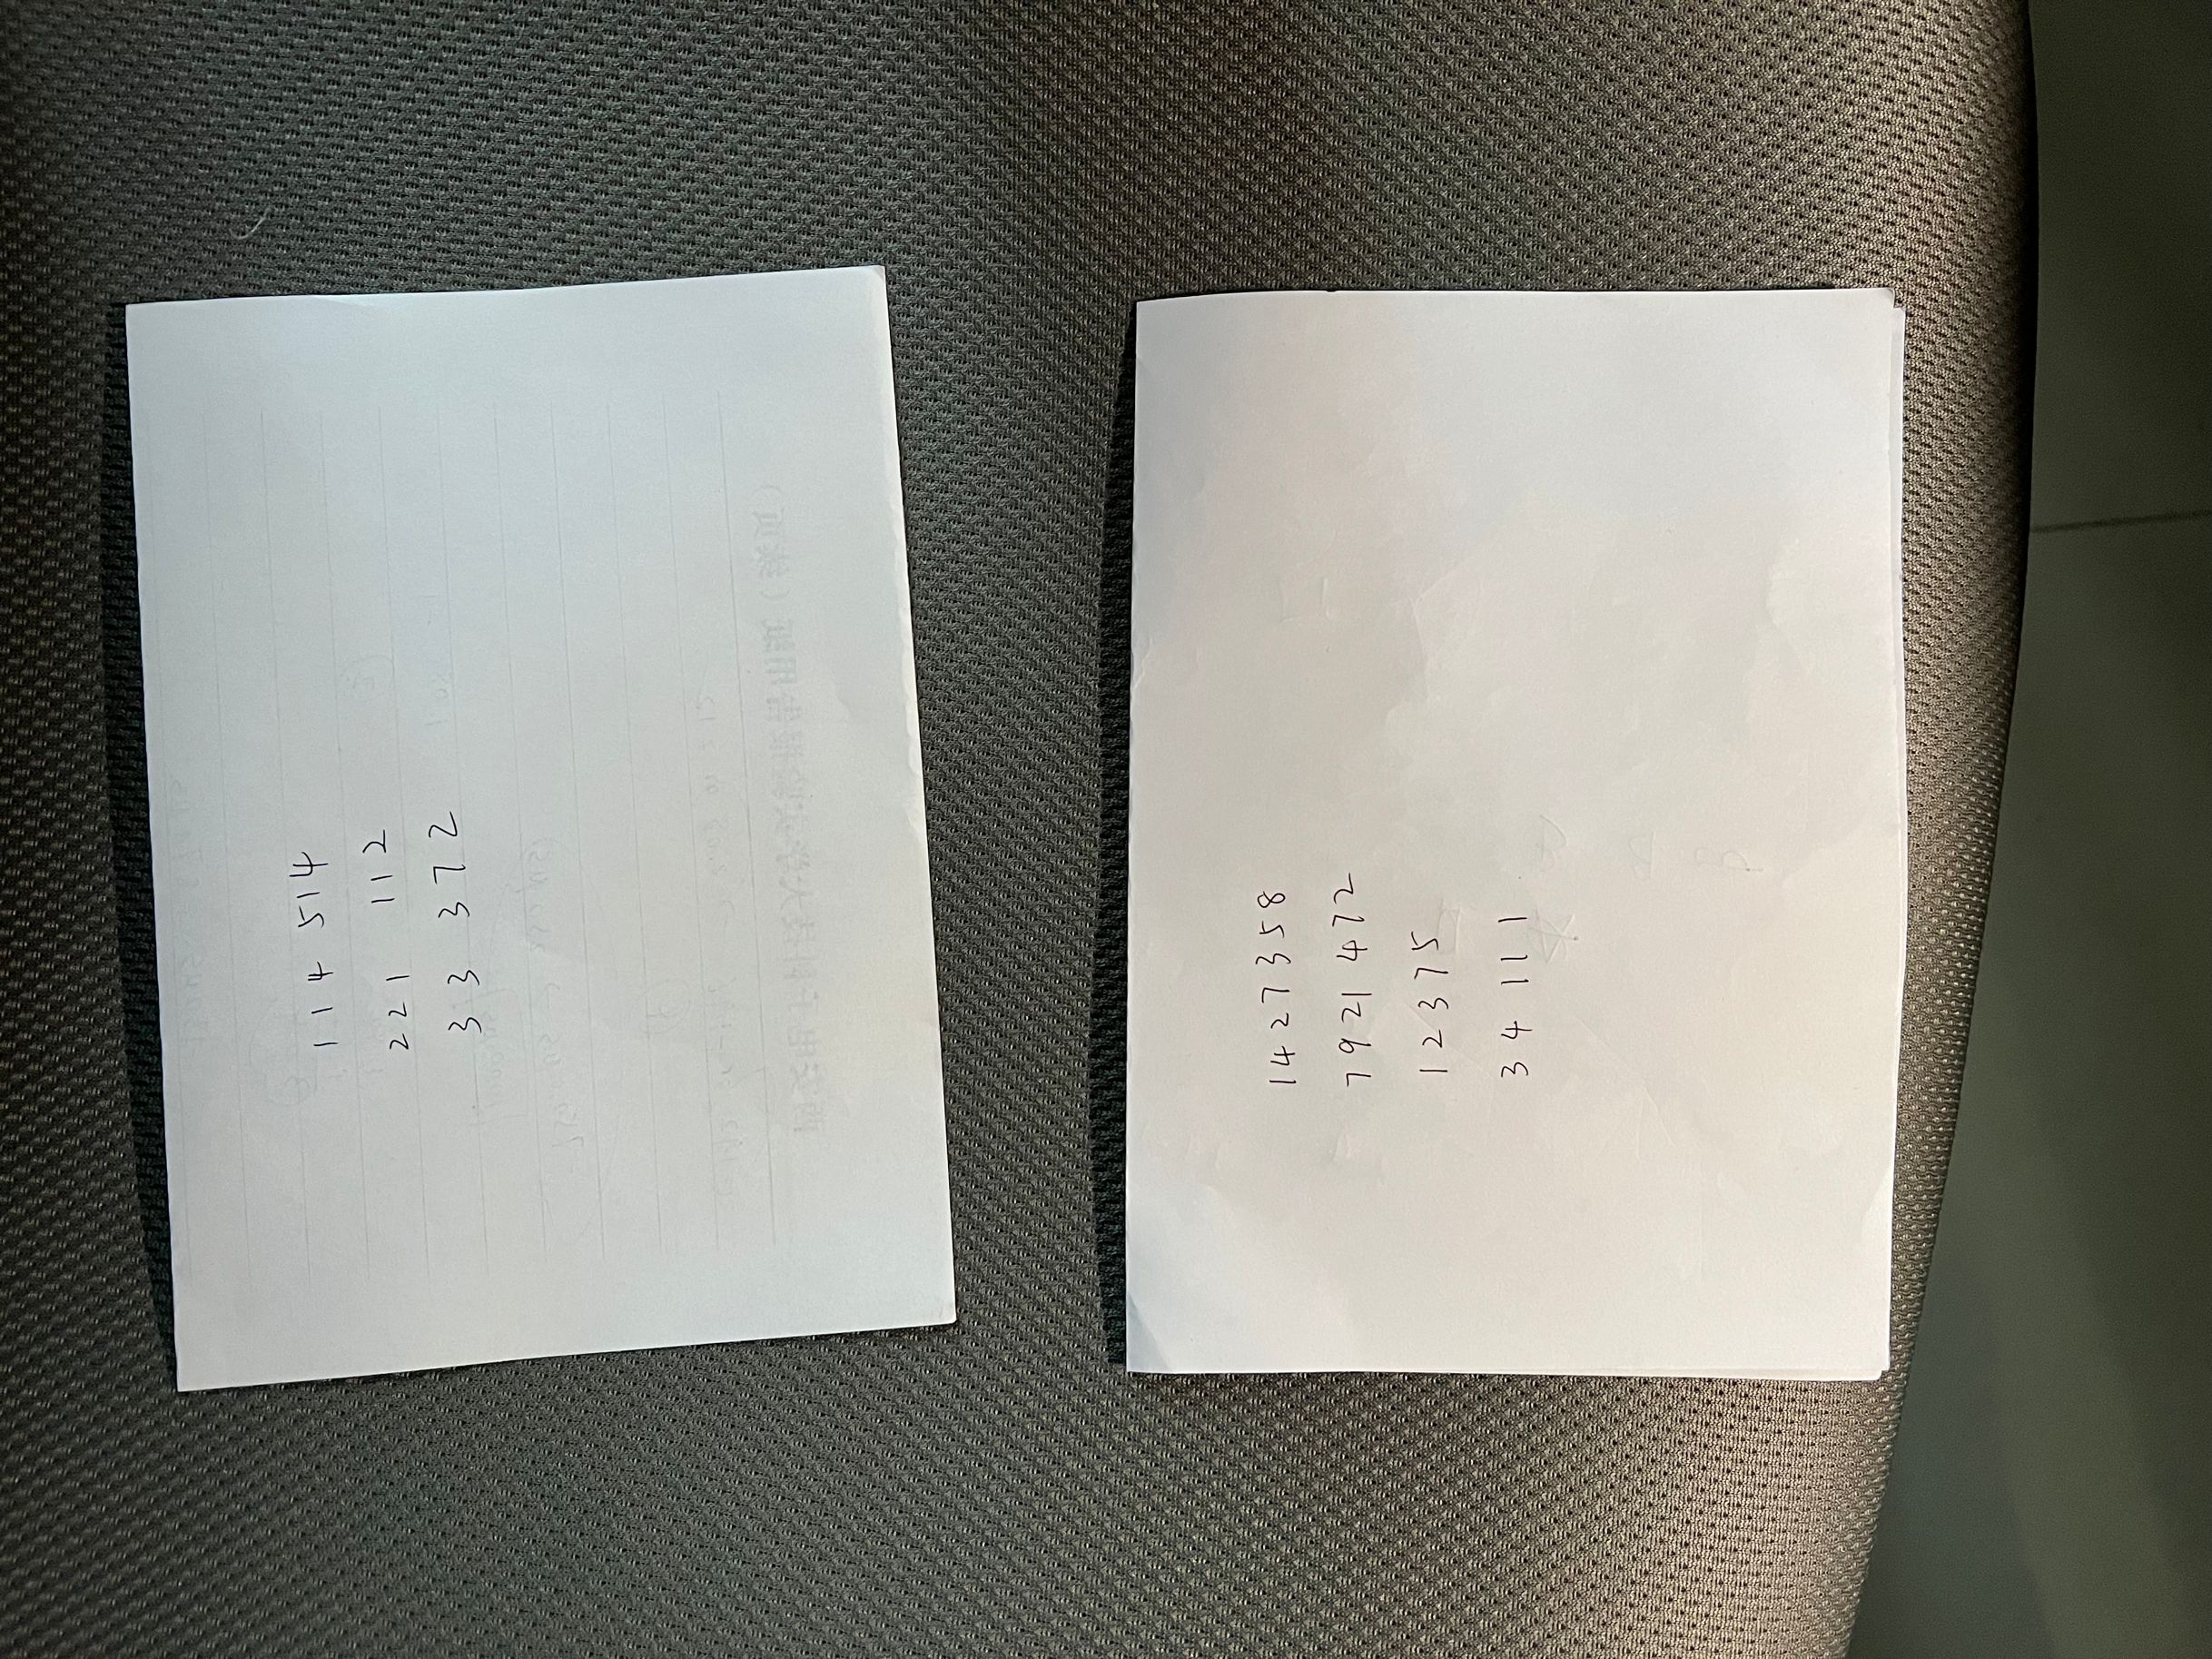 114 514
221 112
33 372
1427358
7921 472
12375
34 111